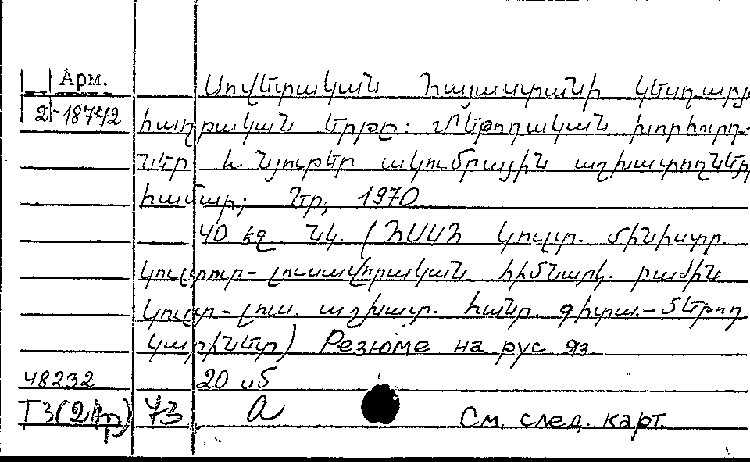 Арм.
2-18742
Սովետական Հայաստանի կեղարվ
հաղրական երթը: Մեթոդական խորհուրդ-
ներ և նյութեր ակումբային աշխատողների
համար; Եր, 1970
40 էջ նկ. (ՀՍՍՀ կուլտ. մինիստր.
կուլտուր-լուսավորական հիմնարկ. բաժին
կուլտ-լուս. աշխատ. հանր գիտա-մեթոդ
կաբինետ) Резюме на рус яз.
48232 20 սմ
Т3(2Ар) 73 а См. след. карт.